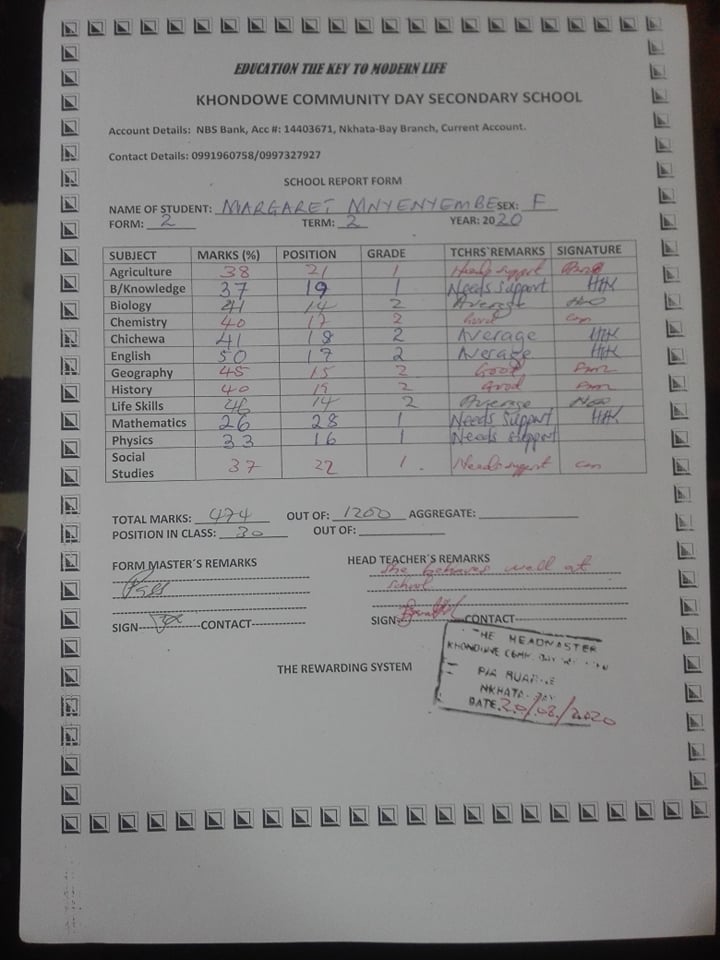 EDUCATION THE KEY TO MODERN LIFE
KHONDOWE COMMUNITY DAY SECONDARY SCHOOL
Account Details: NBS Bank, Acc #: 14403671, Nkhata-Bay Branch, Current Account.
Contact Details: 0991960758/0997327927
SCHOOL REPORT FORM
NAME OF STUDENT: MARGARET MNYENYEMBE SEX: F
FORM: 2 TERM: 2 YEAR: 2020
SUBJECT MARKS (%) POSITION GRADE TCHRS`REMARKS SIGNATURE
Agriculture 38 21 1 Needs support
B/Knowledge 37 19 1 Needs Support
Biology 41 14 2 Average
Chemistry 40 17 2 Good
Chichewa 41 18 2 Average
English 50 17 2 Average
Geography 45 15 2 Good
History 40 19 2 Good
Life Skills 46 14 2 Average
Mathematics 26 28 1 Needs Support
Physics 33 16 1 Needs support
Social Studies 37 22 1. Needs support
TOTAL MARKS: 474 OUT OF: 1200 AGGREGATE:
POSITION IN CLASS: 30 OUT OF:
FORM MASTER'S REMARKS
HEAD TEACHER'S REMARKS
She behaves well at
school
SIGN CONTACT
SIGN CONTACT
THE REWARDING SYSTEM
THE HEADMASTER
KHONDOWE COMM. DAY
NKHATA-BAY
DATE 20/08/2020